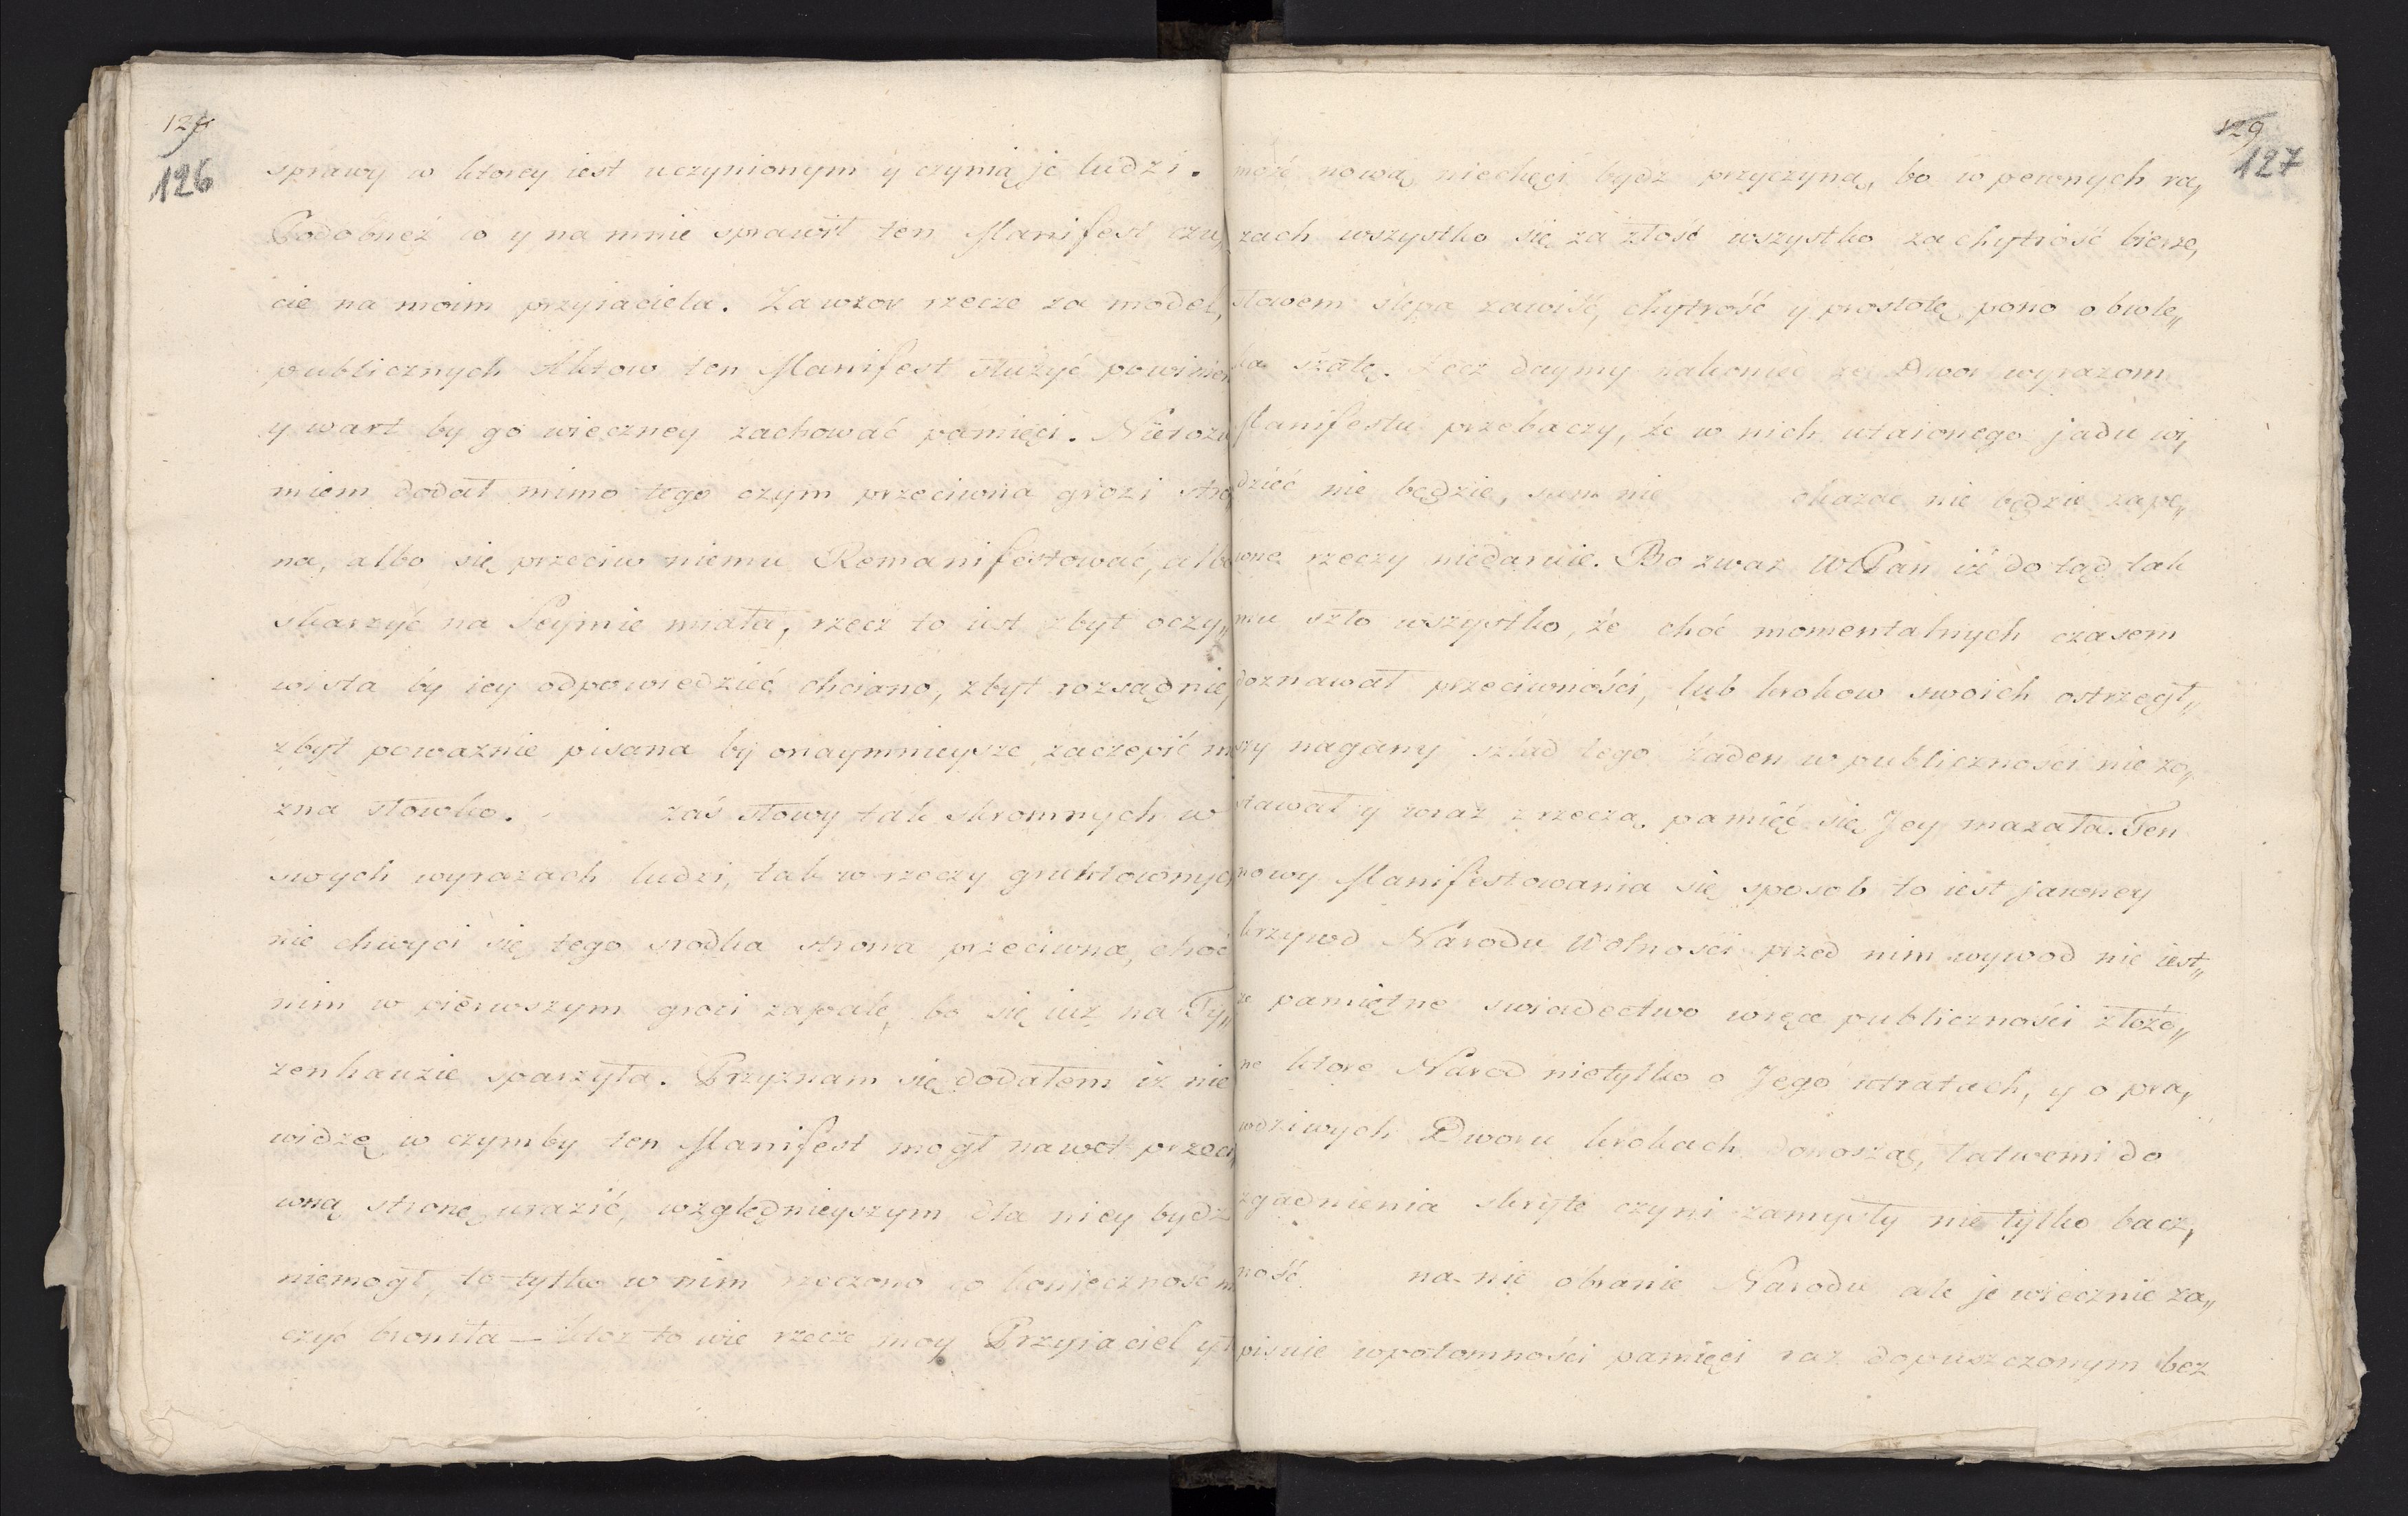 126
sprawy w ktorey iest uczynionym y czynią je ludzi.
Podobneż to y na mnie sprawił ten Manifest czu„
cie na moim przyiacielu. Za wzor rzecze za model,
publicznych Aktow ten Manifest służyć powinien
y wart by go wieczney zachować pamięci. Nierozu
miem dodał mimo tego czym przeciwna grozi stro„
na, albo się przeciw niemu Remanifestować, albo
skarzyć na Seymie miała, rzecz to iest zbyt oczy„
wista by iey odpowiedzieć chciano, zbyt rozsądnie,
zbyt poważnie pisana by onaymnieysze zaczepić m
zna słowko. zaś słowy tak skromnych w
swych wyrazach ludzi, tak w rzeczy gruntownych
nie chwyci się tego srodka strona przeciwna, choć
nim w pierwszym grozi zapale, bo się iuz na Ty„
zenhauzie sparzyła. Przyznam się dodałem iż nie
widzę w czymby ten Manifest mogł nawet przeci„
wną stronę urazić, względnieyszym dla niey bydz
niemogł, to tylko w nim rzeczono co konieczność m
czyć broniła — ktoz to wie rzecze moy Przyiaciel y
129
127
mość nową niechęci bydz przyczyną, bo w pewnych ra„
zach wszystko się za złość wszystko za chytrość bierze,
słowem slepa zawiść, chytrość y prostotę pono
szalę. Lecz daymy nakoniec że Dwor wyrazom
Manifestu przebaczy, że w nich utaionego jadu wi„
dzieć nie będzie, nie będzie
rzeczy niedaruie. Bo zwaz WPan iż do tąd tak
mu szło wszystko, że choć momentalnych czasem
doznawał przeciwności, lub krokow swoich ostrzegł„
szy nagany szlad tego żaden w publiczności nie zo„
stawał y zoraz z rzeczą pamięć się Jey mazała. Ten
nowy Manifestowania się sposob to iest jawney
krzywd Narodu Wolności przed nim wywod nie iest„
że pamiętne swiadectwo w ręce publiczności złożo„
ne ktore Narod nietylko o Jego utratach, y o pra„
wdziwych Dworu krokach donosząc, łatwemi do
zgadnienia skryte czyni zamysły nie tylko bacz„
ność na nie obranie Narodu ale je wiecznie za„
pisuie wpotomności pamięci raz dopuszczonym bez